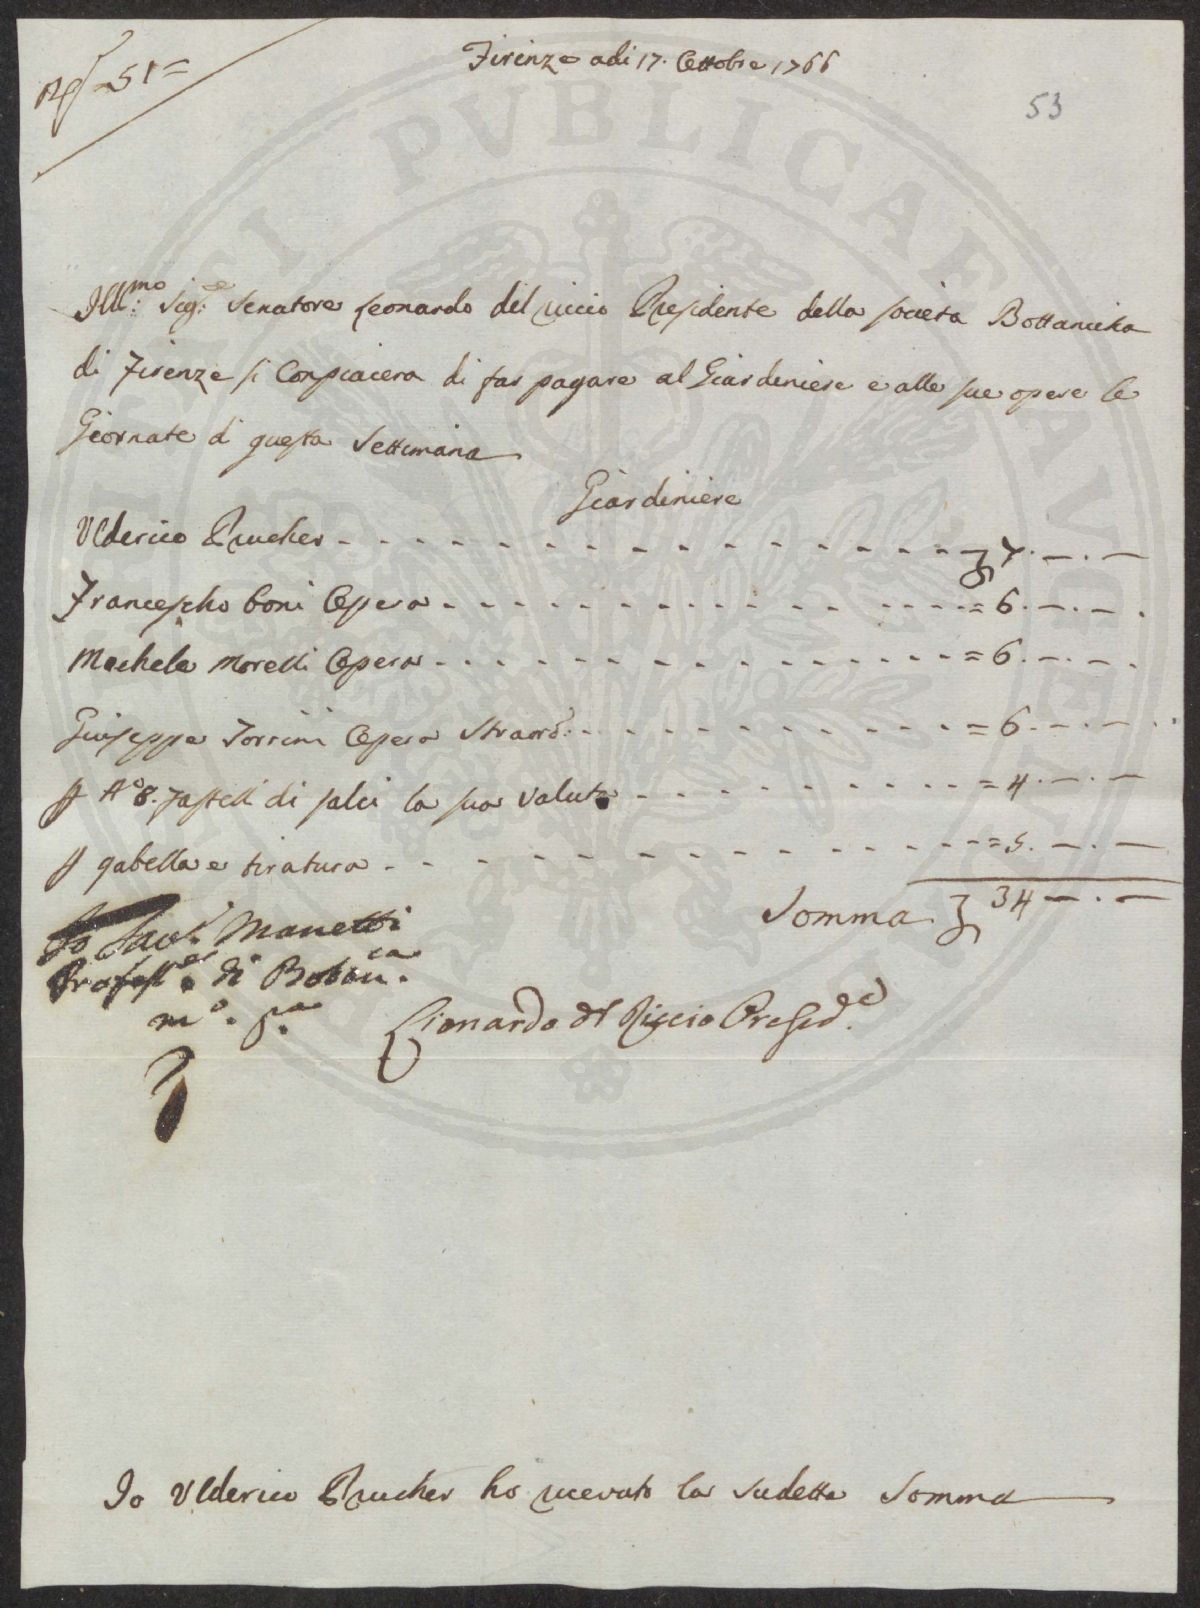 51=
Firenze adi 17. Ottobre 1766
53
Ill:mo Sig:re Senatore Leonardo del riccio Presidente della società Bottanicha
di Firenze si Conpiacera di far pagare al Giardiniere e alle sue opere le
Giornate di questa Settimana
Giardiniere
Ulderico Prucher - - - - 7. —. —
Francescho boni Opera - - - - = 6. —. —.
Machele Morelli Opera - - - - = 6. —. —.
Giuseppe Torrini Opera Straord:. - - - - = 6. —. —
No 8. fastelli di salci la sua Valuta - - - - = 4. —. —
gabella e tiratura - - - - = 5. —. —
Somma 34 —. —
Io Sav:r Manetti
Profess:er di Botan:ca
mo. pa.
Lionardo del Riccio Presid:e
Io Ulderico Prucher ho ricevuto la sudetta Somma